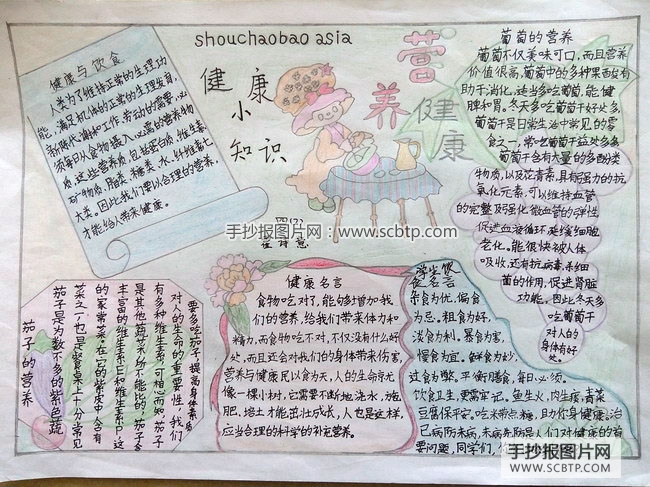 shouchaobao asia
健康
小
知识
营
养
健
康
健康与饮食
人类为了维持正常的生理功
能,满足机体的正常的生理发育,
须每日从食物摄入必需的营养物
质,这些营养质,包括蛋白质,维生素,
矿物质,脂类,糖类,水,针维素七
大类。因此我们要以合理的营养,
才能给人带来健康。
四(2)
葡萄的营养
葡萄不仅美味可口,而且营养
价值很高,葡萄中的多种果酸有
助于消化,适当多吃葡萄,能健
脾和胃。冬天多吃葡萄干好处多,
葡萄干是日常生活中常见的零
食之一,常吃葡萄干益处多多
葡萄干含有大量的多酚类
物质,以及花青素,具有强力的抗
氧化元素,可以维持血管
的完整及强化微血管的弹性
促进血液循环,延缓细胞
老化。能很快被人体
吸收,还有抗病毒,杀细
菌的作用,促进肾脏
功能,因此冬天多
吃葡萄干
对人的
身体有好
处。
茄子的营养
茄子是为数不多的紫色蔬
菜之一,也是餐桌上十分常见
的家常菜。在它的紫皮中含有
丰富的维生素E和维生素P,这
是其他蔬菜水所不能比的,茄子含
有多种维生素,可相而知,茄子
对人的生命的重要性,我们
要多吃茄子,提高身体素质
健康名言
食物吃对了,能够增加我
们的营养,给我们带来体力和
精力,而食物吃不对,不仅没有什么好
处,而且还会对我们的身体带来伤害,
营养与健康民以食为天,人的生命就尤
像一棵小树,它需要不断地浇水,施
肥,培土才能茁壮成长,人也是这样,
应当合理的科学的补充营养。
学生饮
食名言
杂食为优,偏食
为忌。粗食为好,
淡食为利。暴食为害,
慢食为宜。鲜食为妙,
过食为弊。平衡膳食,每日必须。
饮食卫生,要需牢记。鱼生火,肉生痰,青菜
豆腐保平安。吃米带点糠,助你身健康,治
已病防未病,未病先防是人们对健康的首
要问题,同学们,
手抄报图片网
www.scbtp.com
手抄报图片网
WWW.SCBTP.COM